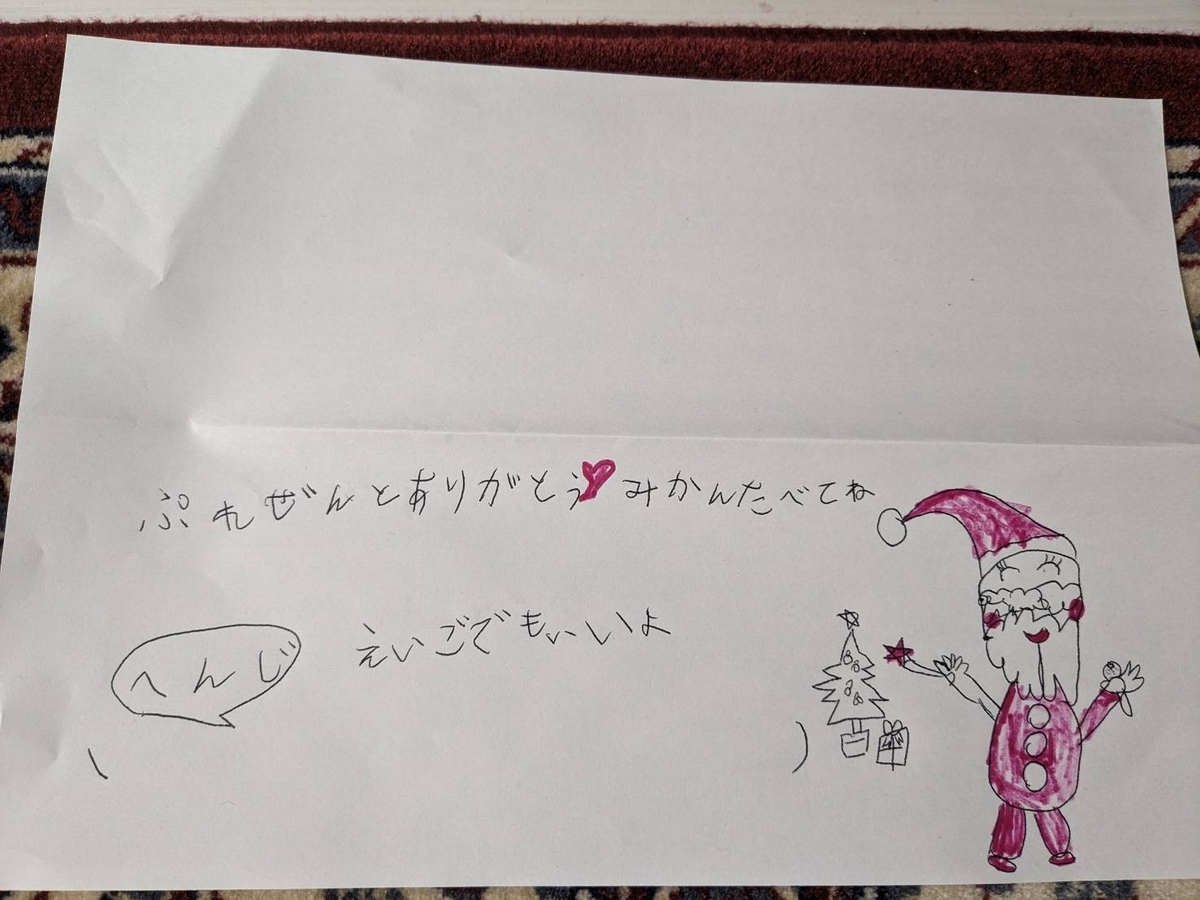 ぷれぜんとありがとう♥みかんたべてね
へんじ えいごでもいいよ
( )